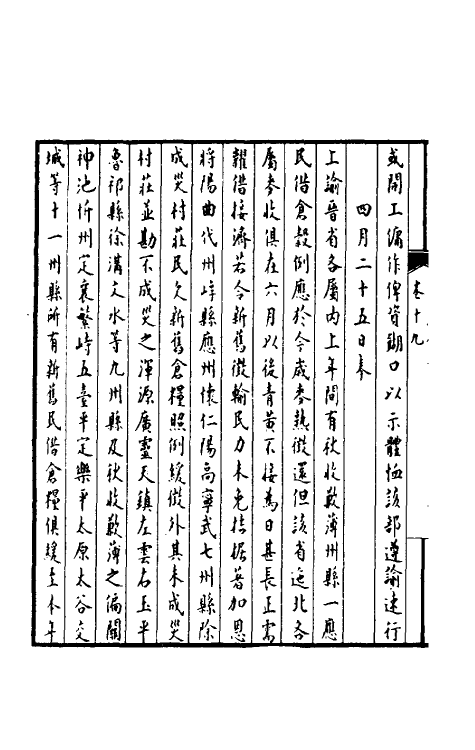 或開工僱作俾資餬口以示體恤該部遵諭速行
四月二十五日奉
上諭晉省各屬內上年間有秋收歉薄州縣一應
民借倉穀例應於今歲麥熟徵還但該省迤北各
屬麥收俱在六月以後青黃不接為日甚長正需
糶借接濟若令新舊徵輸民力未免拮据著加恩
將陽曲代州崞縣應州懷仁陽高寧武七州縣除
成災村莊民欠新舊倉糧照例緩徵外其未成災
村莊並勘不成災之渾源廣靈天鎮左雲右玉平
魯祁縣徐溝文水等九州縣及秋收歉薄之偏關
神池忻州定襄繁峙五臺平定樂平太原太谷交
城等十一州縣所有新舊民借倉糧俱緩至本年
卷十九